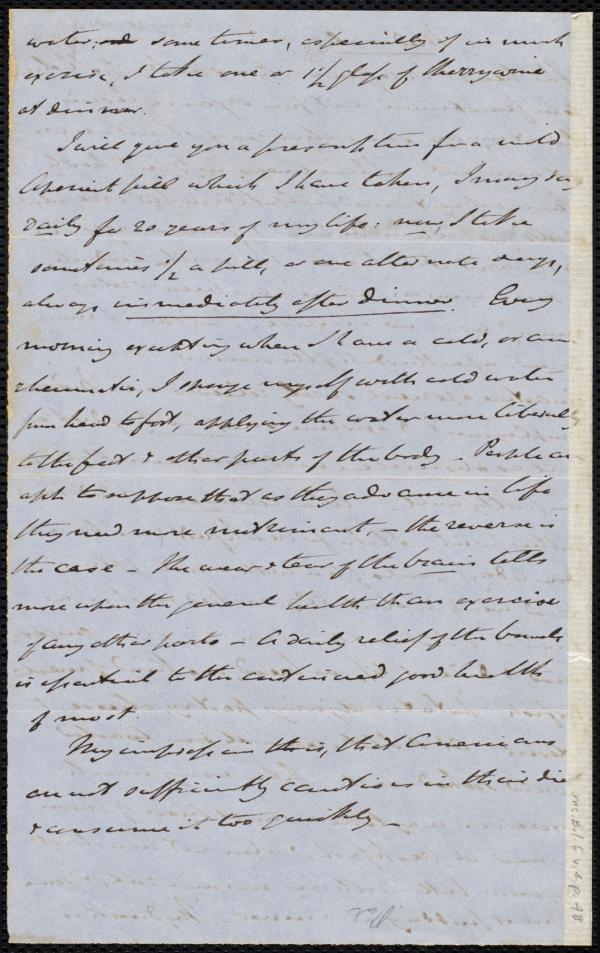 water: sometimes, especially if in much
exercise, I take one or 1 1/2 glass of Sherry wine
at dinner.
I will give you a prescription for a mild
Aperient pill which I have taken, I may say
daily for 20 years of my life: now, I take
sometimes 1/2 a pill, or one alternate days,
always immediately after dinner. Every
morning excepting when I have a cold, or am
rheumatic, I sponge myself with cold water
from head to foot, applying the water more liberally
to the feet & other parts of the body - People are
apt to suppose that as they advance in life
they need more nutriment, - the reverse is
the case - The wear & tear of the brain tells
more upon the general health than exercise
of any other parts - A daily relief of the bowels
is essential to the continued good health
of most.
My impression this is, that Americans
are not sufficiently cautious in their diet
& consume it too quickly -
Ms. B. 1. 6 v. 4. p. 48